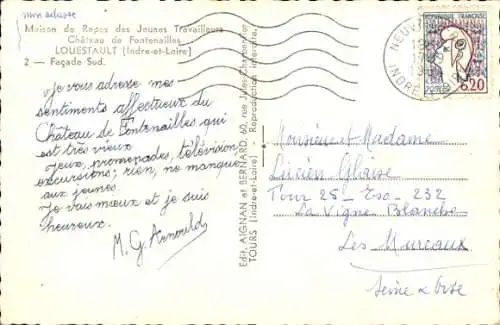 mon adresse
Maison de Repos des Jeunes Travailleurs
Château de Fontenailles
LOUESTAULT (Indre-et-Loire)
2 — Façade Sud.
Je vous adresse mes
sentiments affectueux du
Château de Fontenailles qui
est très vieux
Jeux, promenades, télévision,
excursions; rien, ne manque
aux jeunes.
Je vais mieux et je suis
heureux.
M. G. Arnould
Edit. AIGNAN et BERNARD, 60, rue Jules-Charpentier
TOURS (Indre-et-Loire) Reproduction interdite.
REPUBLIQUE FRANCAISE
POSTES 0,20
NEUV
INDRE
Monsieur et Madame
Lucien Glaise
Tour 25 - Esc. 232
La Vigne Blanche
Les Mureaux
Seine & Oise